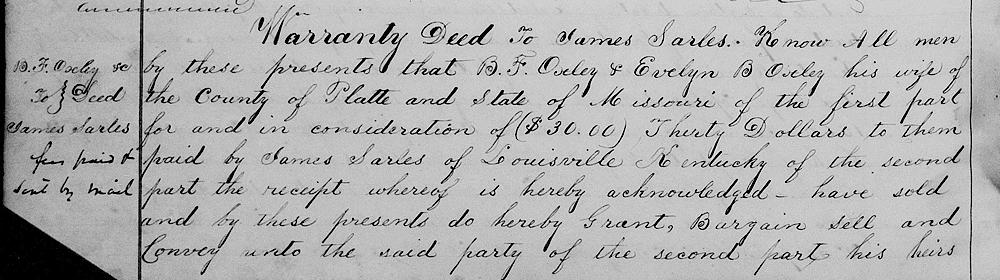 Warranty Deed To James Sarles. Know All men
B. F. Oxley &c
by these presents that B. F. Oxley & Evelyn B Oxley his wife of
To } Deed
the County of Platte and State of Missouri of the first part
James Sarles
for and in consideration of ($30.00) Thirty Dollars to them
fees paid &
paid by James Sarles of Louisville Kentucky of the second
sent by mail
part the receipt whereof is hereby acknowledged - have sold
and by these presents do hereby Grant, Bargain Sell and
Convey unto the said party of the second part his heirs